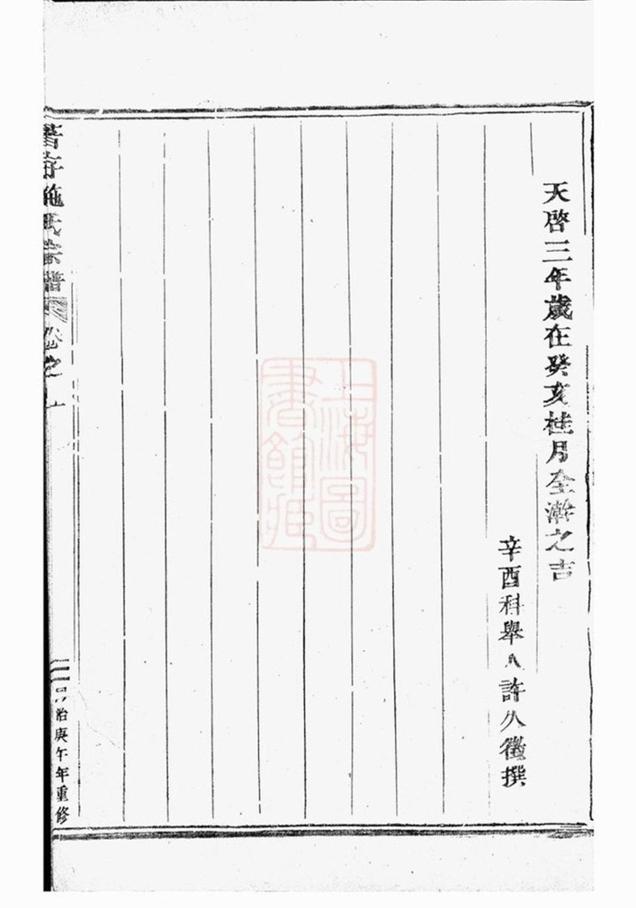 天啓三年歲在癸亥桂月全澣之吉
辛酉科舉人許久徵撰
施氏宗譜 卷之一
同治庚午年重修
上海圖書館藏